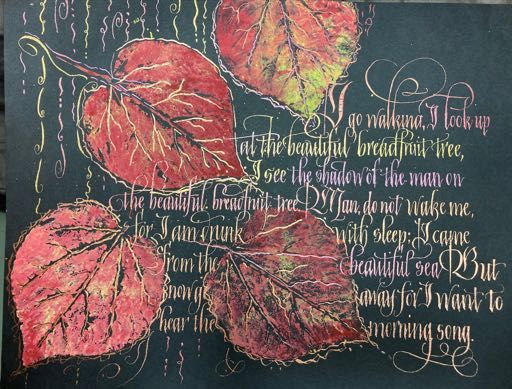 I go walking, I look up
at the beautiful breadfruit tree,
I see the shadow of the man on
the beautiful breadfruit tree Man, do not wake me,
for I am drunk with sleep; I came
from the beautiful sea But
now go away for I want to
hear the morning song.